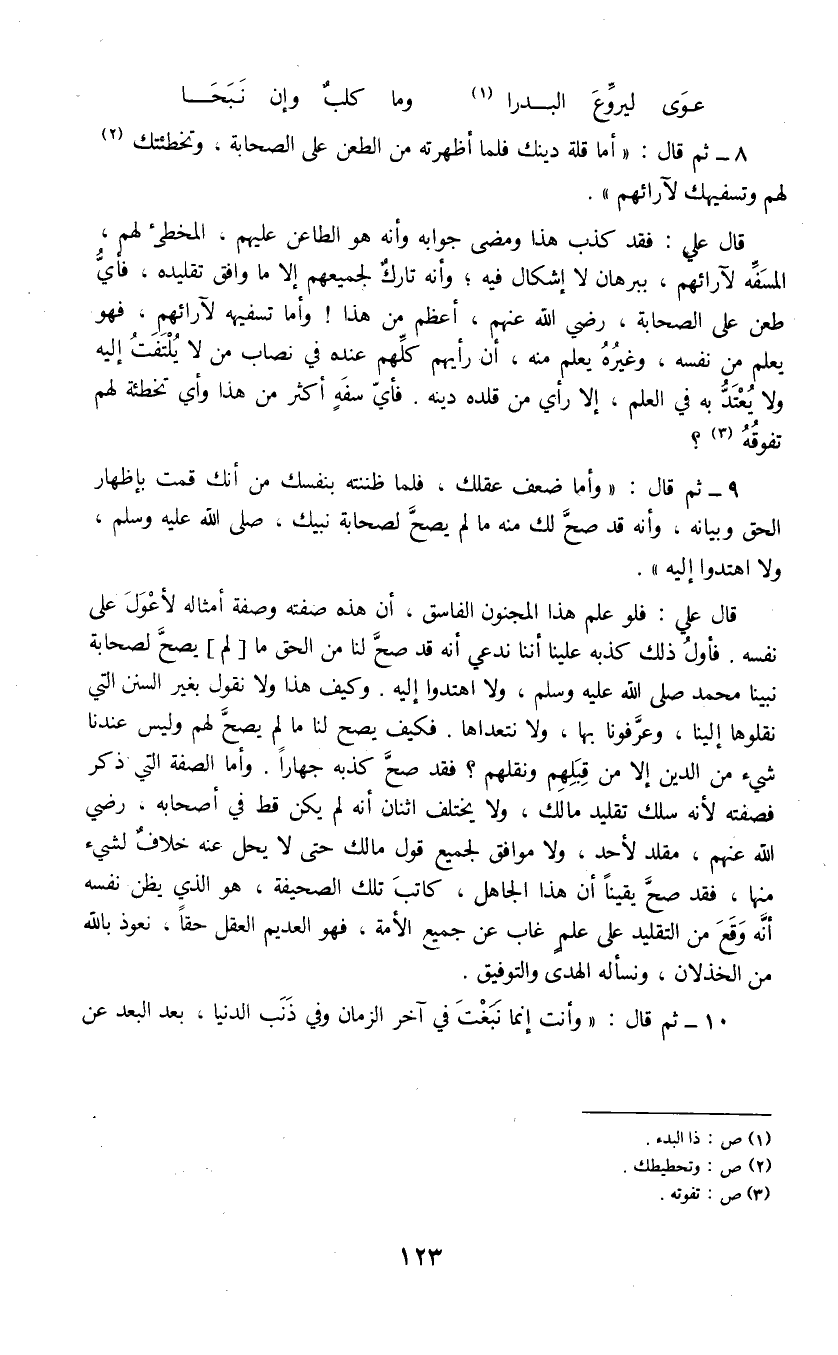 عوَى ليروِّعَ البــدرا (١) وما كلبٌ وإن نَبَحَــا
٨ ـ ثم قال : « أما قلة دينك فلما أظهرته من الطعن على الصحابة ، وتخطئتك (٢)
لهم وتسفيهك لآرائهم » .
قال علي : فقد كذب هذا ومضى جوابه وأنه هو الطاعن عليهم ، المخطئ لهم ،
المسَفِّه لآرائهم ، ببرهان لا إشكال فيه ؛ وأنه تاركٌ لجميعهم إلا ما وافق تقليده ، فأيُّ
طعن على الصحابة ، رضي الله عنهم ، أعظم من هذا ! وأما تسفيهه لآرائهم ، فهو
يعلم من نفسه ، وغيرُهُ يعلم منه ، أن رأيهم كلِّهم عنده في نصاب من لا يُلْتَفَتُ إليه
ولا يُعْتَدُّ به في العلم ، إلا رأي من قلده دينه . فأيّ سفَهٍ أكثر من هذا وأي تخطئة لهم
تفوقُهُ (٣) ؟
٩ ـ ثم قال : « وأما ضعف عقلك ، فلما ظننته بنفسك من أنك قمت بإظهار
الحق وبيانه ، وأنه قد صحَّ لك منه ما لم يصحَّ لصحابة نبيك ، صلى الله عليه وسلم ،
ولا اهتدوا إليه » .
قال علي : فلو علم هذا المجنون الفاسق ، أن هذه صفته وصفة أمثاله لأعْوَلَ على
نفسه . فأولُ ذلك كذبه علينا أننا ندعي أنه قد صحَّ لنا من الحق ما [ لم ] يصحَّ لصحابة
نبينا محمد صلى الله عليه وسلم ، ولا اهتدوا إليه . وكيف هذا ولا نقول بغير السنن التي
نقلوها إلينا ، وعرَّفونا بها ، ولا نتعداها . فكيف يصح لنا ما لم يصحَّ لهم وليس عندنا
شيء من الدين إلا من قِبَلِهِم ونقلهم ؟ فقد صحَّ كذبه جهاراً . وأما الصفة التي ذكر
فصفته لأنه سلك تقليد مالك ، ولا يختلف اثنان أنه لم يكن قط في أصحابه ، رضي
الله عنهم ، مقلد لأحد ، ولا موافق لجميع قول مالك حتى لا يحل عنه خلافٌ لشيء
منها ، فقد صحَّ يقيناً أن هذا الجاهل ، كاتبَ تلك الصحيفة ، هو الذي يظن نفسه
أنَّه وَقَعَ من التقليد على علمٍ غاب عن جميع الأمة ، فهو العديم العقل حقاً ، نعوذ بالله
من الخذلان ، ونسأله الهدى والتوفيق .
١٠ ـ ثم قال : « وأنت إنما نَبَغْتَ في آخر الزمان وفي ذَنَب الدنيا ، بعد البعد عن
(١) ص : ذا البدء .
(٢) ص : وتحطيطك .
(٣) ص : تفوته .
١٢٣